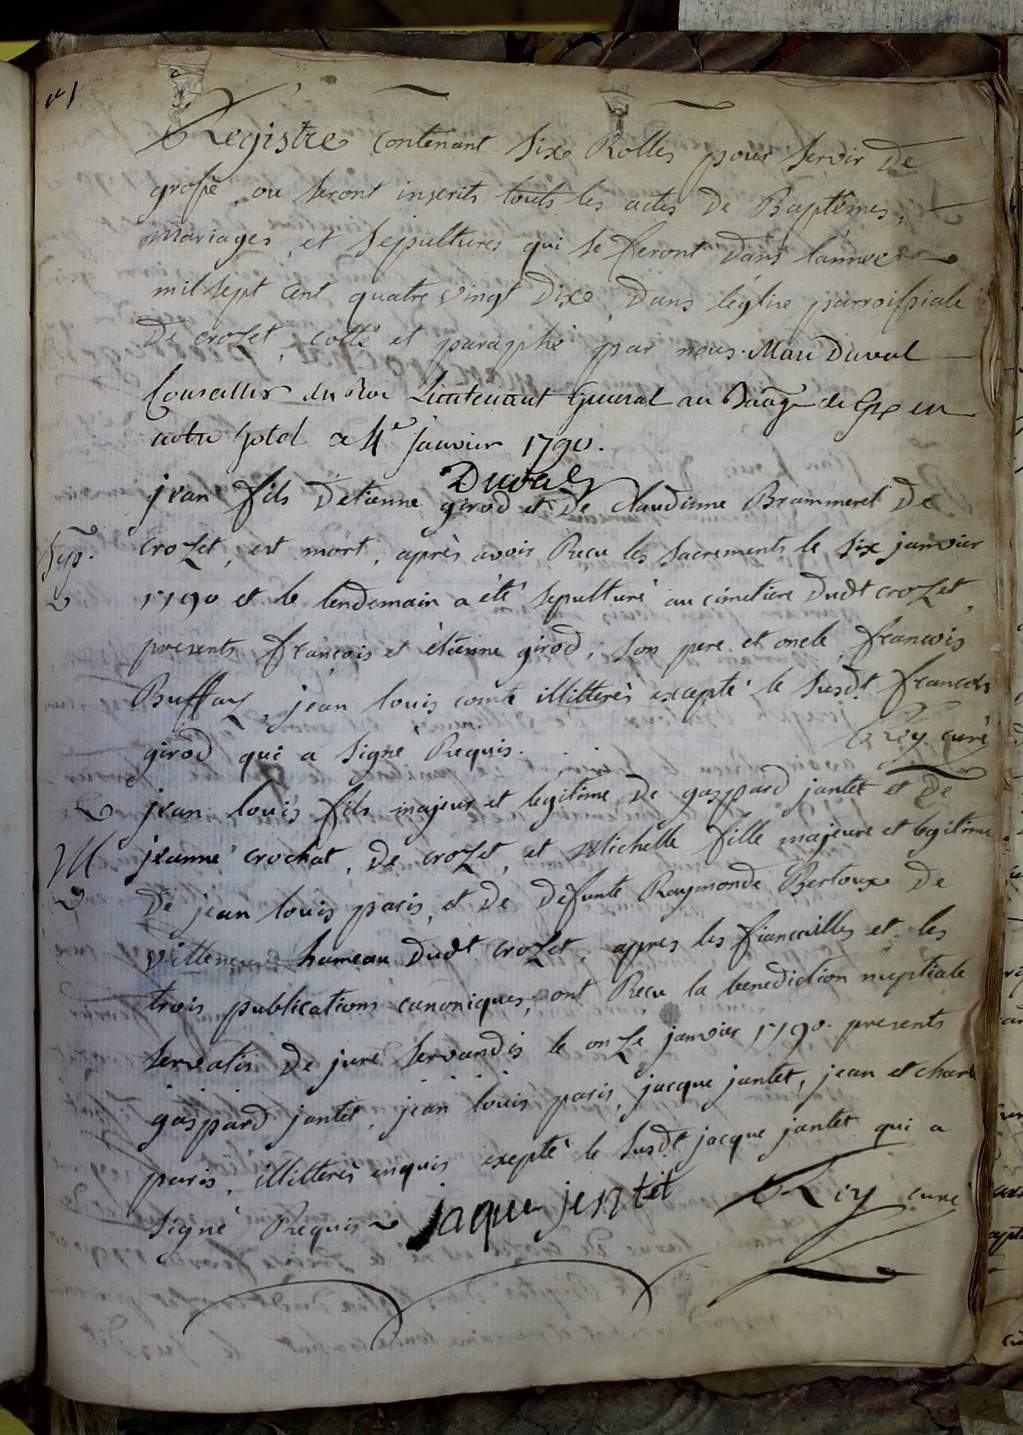 Registre contenant six Rolles pour servir de
grosse, ou seront inserits touts les actes de Baptêmes,
mariages, et sepultures qui se feront dans l'année
mil sept cent quatre vingt dixe, dans l'eglise parroissiale
de croZet, cotté et paraphé par nous. Marc Duval
Conseiller du Roi Lieutenant General au Baãge de Gex en
notre hotel ce 4e Janvier 1790.
Duval
jean fils d'etienne girod et de claudinne Brammeret de
Sep.
croZet, est mort, après avoir Reçu les sacrements le six janvier
1790 et le lendemain a été sepulturé au cimetiere dudt croZet,
presents françois et étienne girod, son pere et oncle, francois
Buffaz, jean louis comte illitterés excepté le susdt francois
girod qui a signe Requis.
Rey curé
jean louis fils majeur et legitime de gaspard jantet et de
M
jeanne crochat, de croZet, et Michelle fille majeure et legitime
de jean louis paris, et de defunte Raymonde Bertoux de
villeneuve hameau dudt croZet, apres les fiancailles et les
trois publications canoniques, ont Reçu la benediction nuptiale
servatis de jure servandis le onZe janvier 1790. presents
gaspard jantet, jean louis paris, jacque jantet, jean et charle
paris, illitterés enquis exepté le susdt jacque jantet qui a
signé Requis
jaque jentet
Rey curé